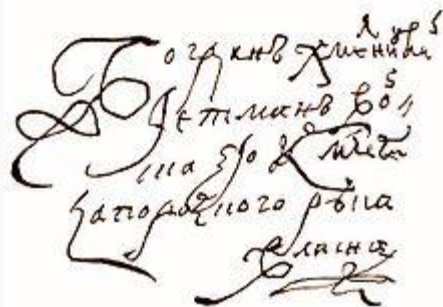 Богданъ Хмелниц
Гетманъ Вой
ска Его К Млсти
Запорозкого рука
власна